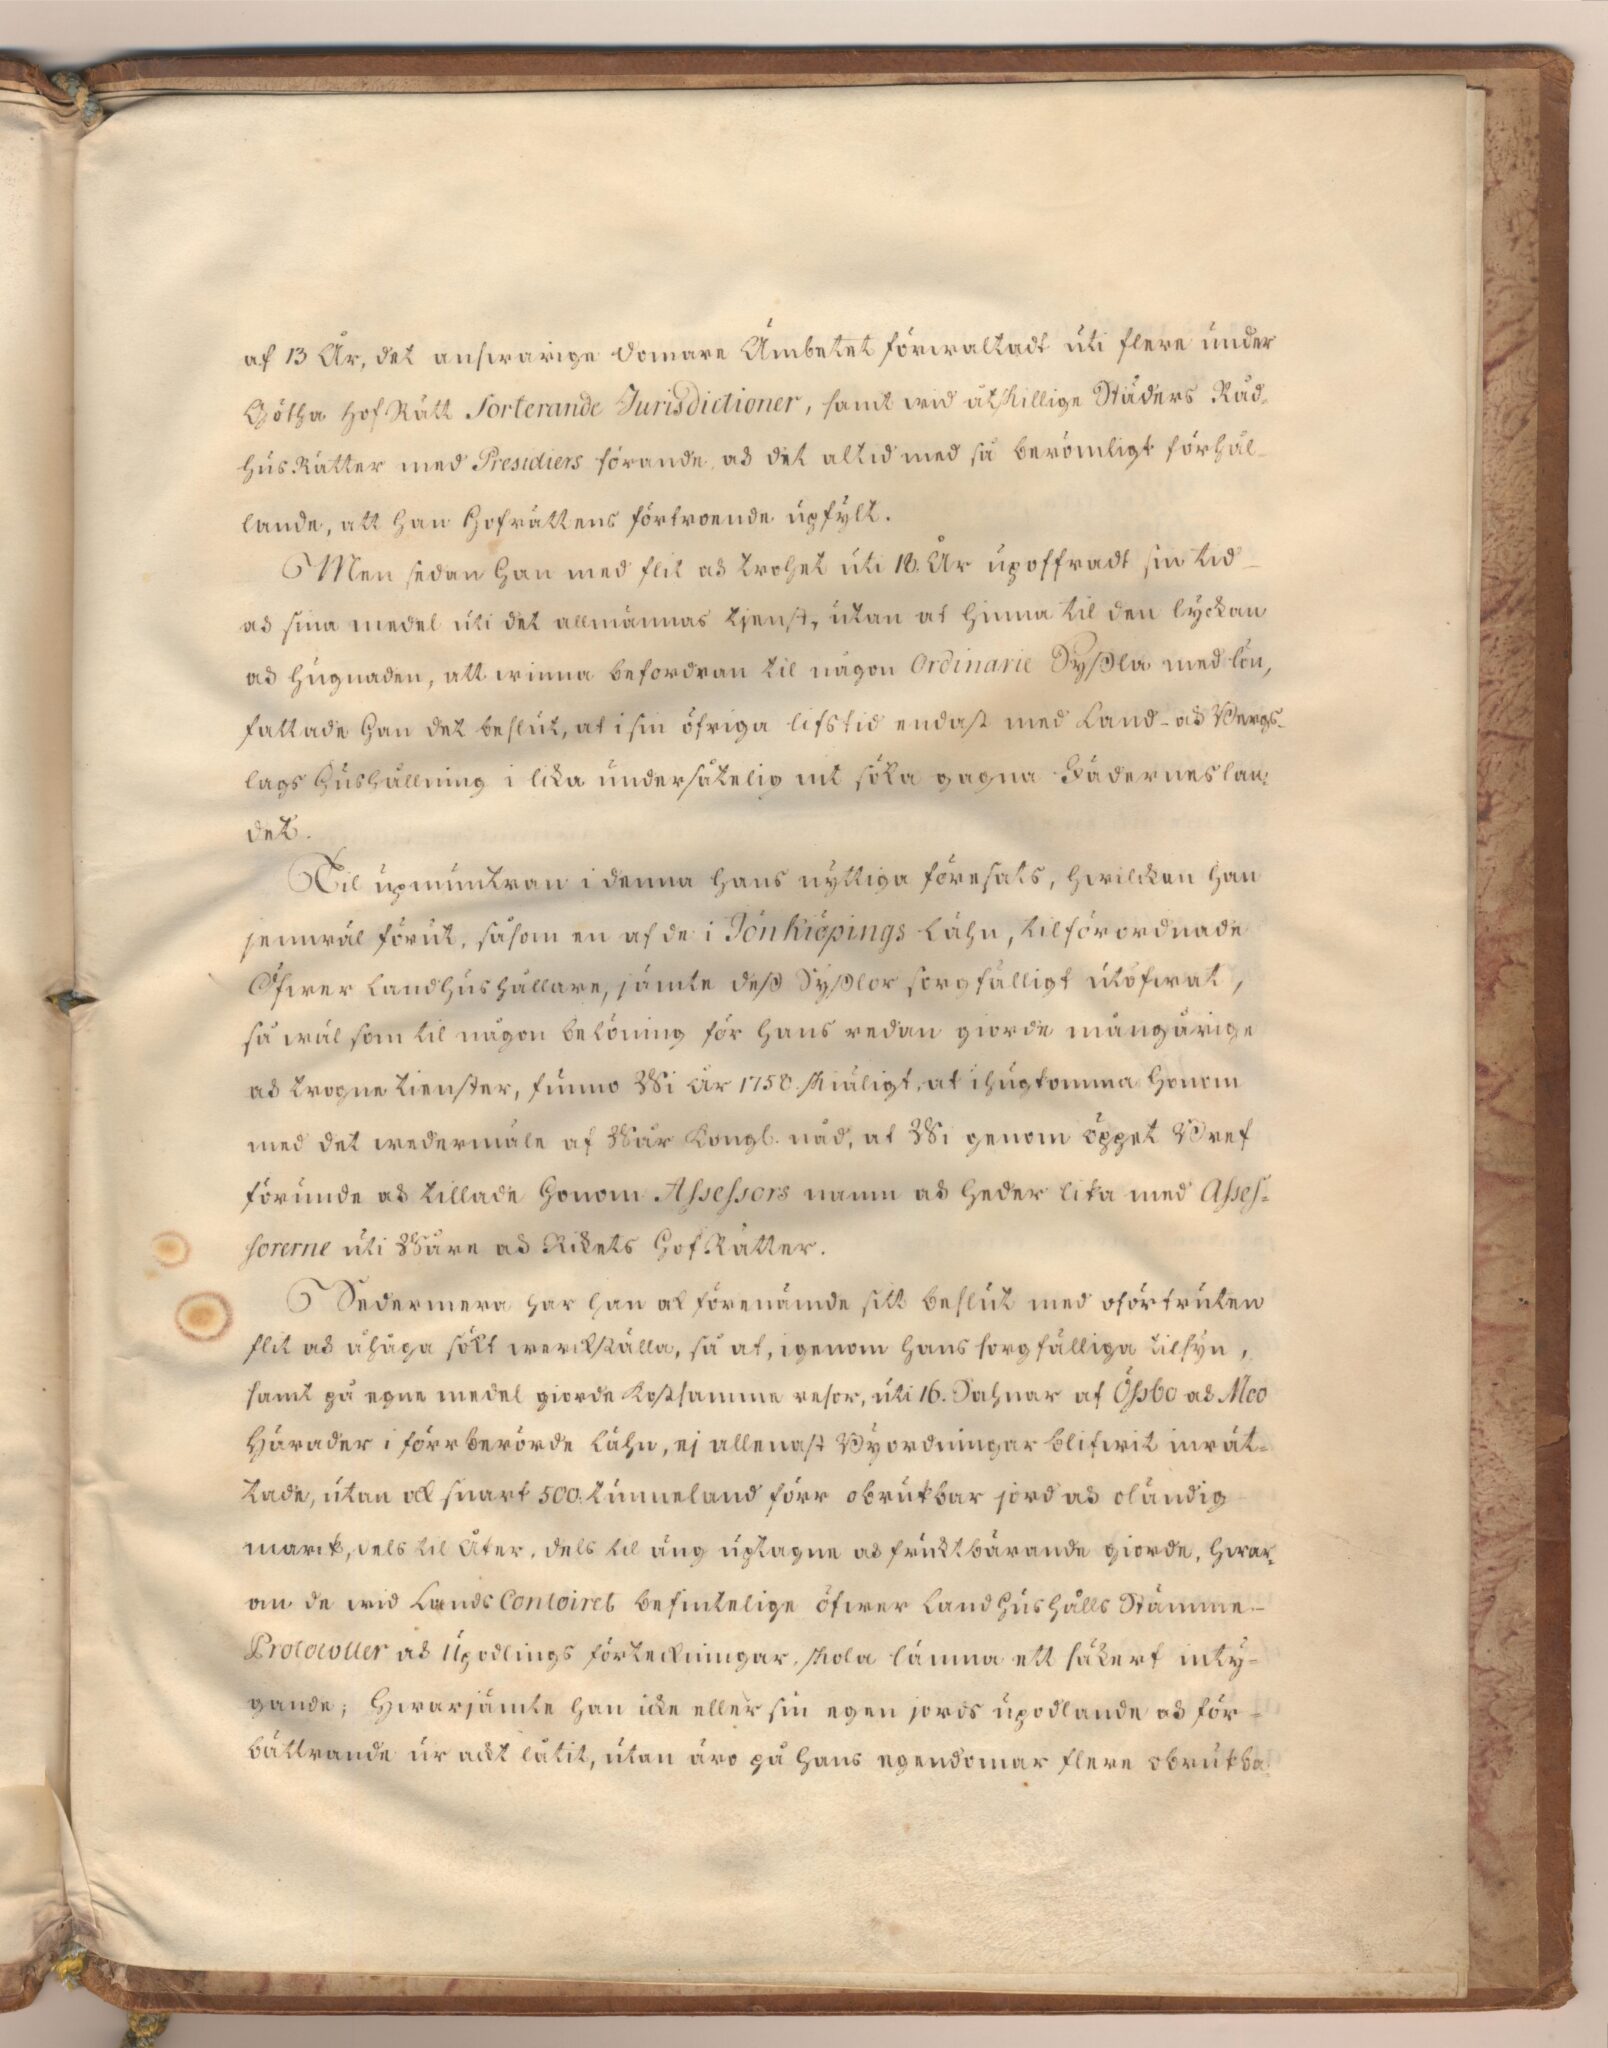 af 13 År, det answarige Domare Ämbetet förwaltadt uti flere under
Götha Hof Rätt Sorterande Jurisdictioner, samt wid åtskillige Städers Råd-
hus Rätter med Presidiers förande, och det altid med så berömligt förhål-
lande, att Han Hofrättens förtroende upfylt.
Men sedan Han med flit och trohet uti 18. År upoffradt sin tid
och sina medel uti det allmännas tjenst, utan at hinna til den lyckan
och hugnaden, att winna befordran til någon Ordinarie Syßla med lön,
fattade Han det beslut, at i sin öfriga lifstid endast med Land- och Bergs-
lags Hushållning i lika undersåtelig nit söka gagna Fäderneslan-
det.
Til upmuntran i denna hans nyttiga föresats, hwilcken han
jemwäl förut, såsom en af de i Jönkiöpings Lähn, tilförordnade
Öfwer Landhushållare, jämte deß Syßlor sorgfälligt utöfwat,
så wäl som til någon belöning för Hans redan giorde mångårige
och trogne tienster, funno Wi År 1758. skiäligt, at ihugkomma Honom
med det wedermäle af Wår Kongl. nåd, at Wi genom öppet Bref
förunde och tillade Honom Assessors namn och heder lika med Asses-
sorerne uti Wåre och Rikets Hof Rätter.
Sedermera har han ock förenämde sitt beslut med oförtruten
flit och åhåga sökt werckställa, så at, igenom hans sorgfälliga tilsyn,
samt på egne medel giorde kostsamme resor, uti 16. Sochnar af Össbo och Moo
Härader i förrberörde Lähn, ej allenast Byordningar blifwit inrät-
tade, utan ock snart 500. tunneland förr obrukbar jord och oländig
marck, dels til Åker, dels til äng uptagne och fruktbärande giorde, hwar-
om de wid Lands Contoiret befintelige öfwer Landhushålls Stämme-
Protocoller och Upodlings förteckningar, skola lämna ett säkert inty-
gande; Hwarjämte han icke eller sin egen jords upodlande och för-
bättrande ur acht låtit, utan äro på hans egendomar flere obrukba-